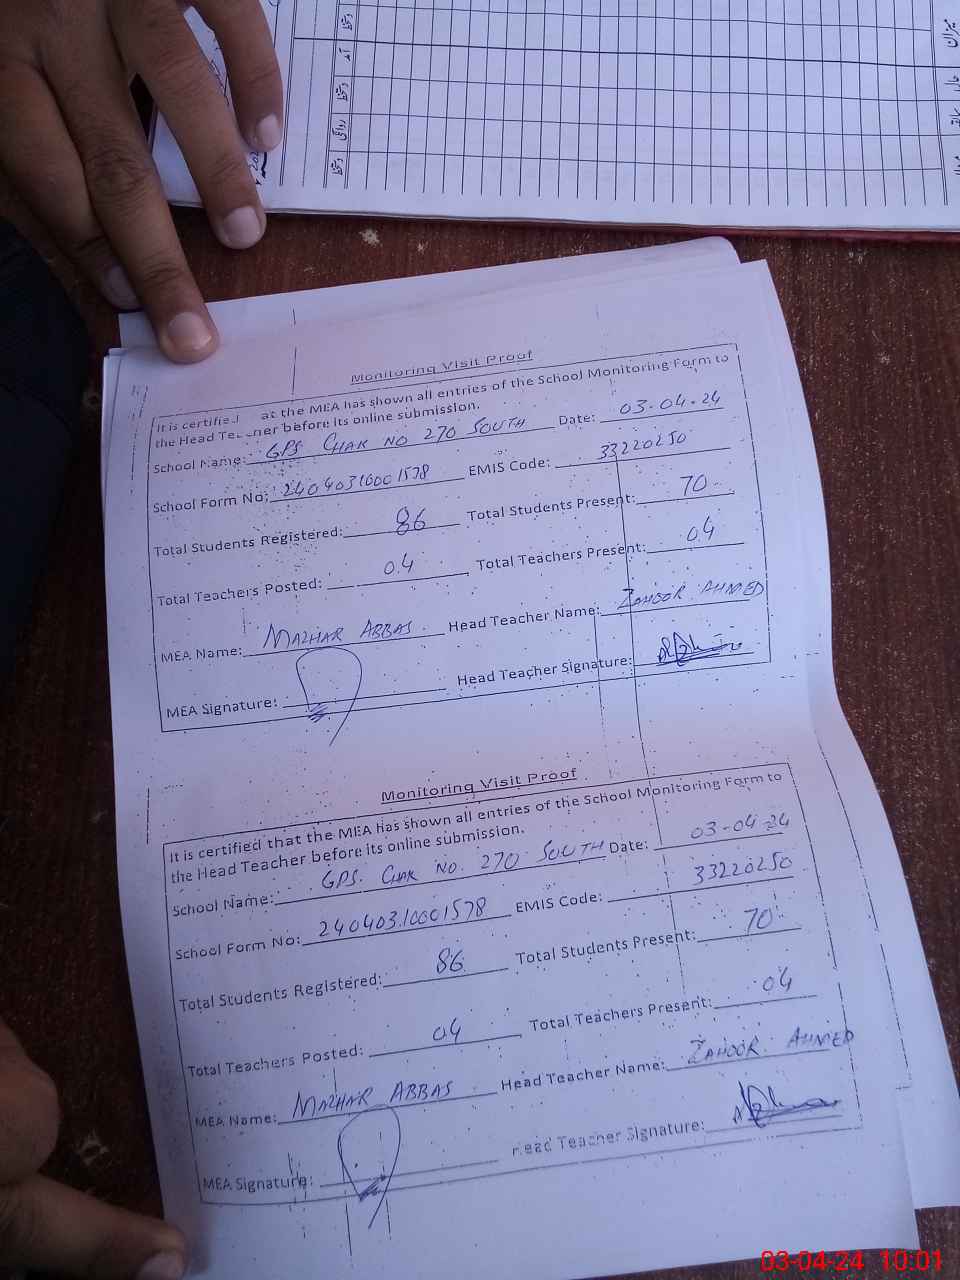 دستخط
آمد
دستخط
روانگی
دستخط
میزان
حال
سابقہ
Monitoring Visit Proof
It is certified at the MEA has shown all entries of the School Monitoring Form to
the Head Teacher before its online submission.
School Name: GPS CHAK NO 270 SOUTH Date: 03-04-24
School Form No: 24040310001578 EMIS Code: 33220250
Total Students Registered: 86 Total Students Present: 70
Total Teachers Posted: 04 Total Teachers Present: 04
MEA Name: MAZHAR ABBAS. Head Teacher Name: ZAHOOR AHMED
MEA Signature: Head Teacher Signature:
Monitoring Visit Proof
It is certified that the MEA has shown all entries of the School Monitoring Form to
the Head Teacher before its online submission.
School Name: GPS. CHAK NO. 270 SOUTH Date: 03-04-24
School Form No: 24040310001578 EMIS Code: 33220250
Total Students Registered: 86 Total Students Present: 70
Total Teachers Posted: 04 Total Teachers Present: 04
MEA Name: MAZHAR ABBAS Head Teacher Name: ZAHOOR AHMED
MEA Signature: Head Teacher Signature:
03-04-24 10:01